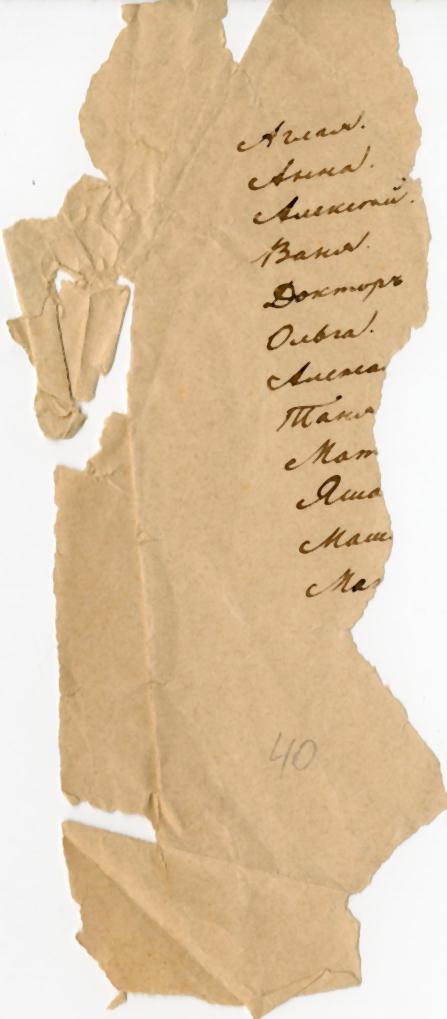 Аглая.
Анна.
Алексѣй.
Ваня.
Докторъ
Ольга.
Алекса
Таня
Мат
Яша
Маш
Ма
40